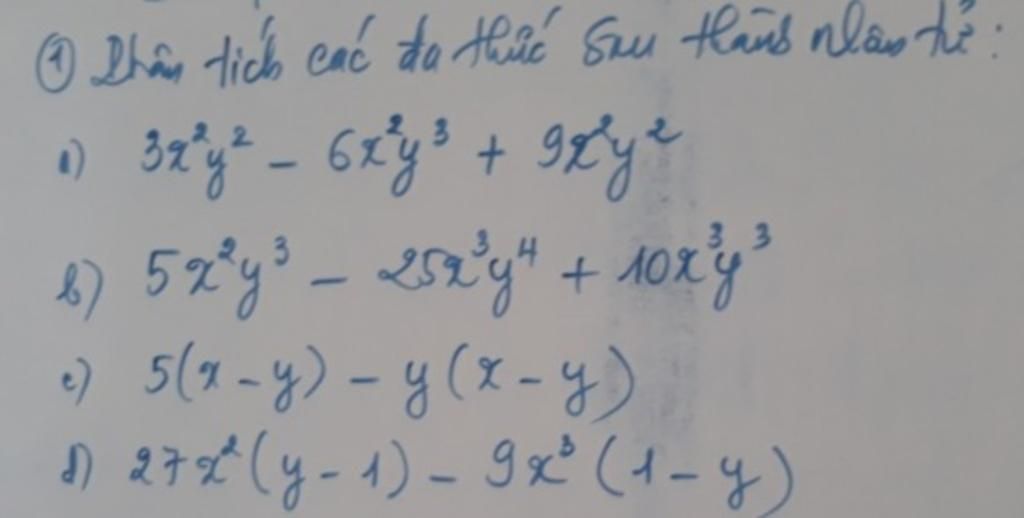 ① Phân tích các đa thức sau thành nhân tử:
a) 3x²y² - 6x²y³ + 9x²y²
b) 5x²y³ - 25x³y⁴ + 10x³y³
c) 5(x - y) - y(x - y)
d) 27x²(y - 1) - 9x³(1 - y)